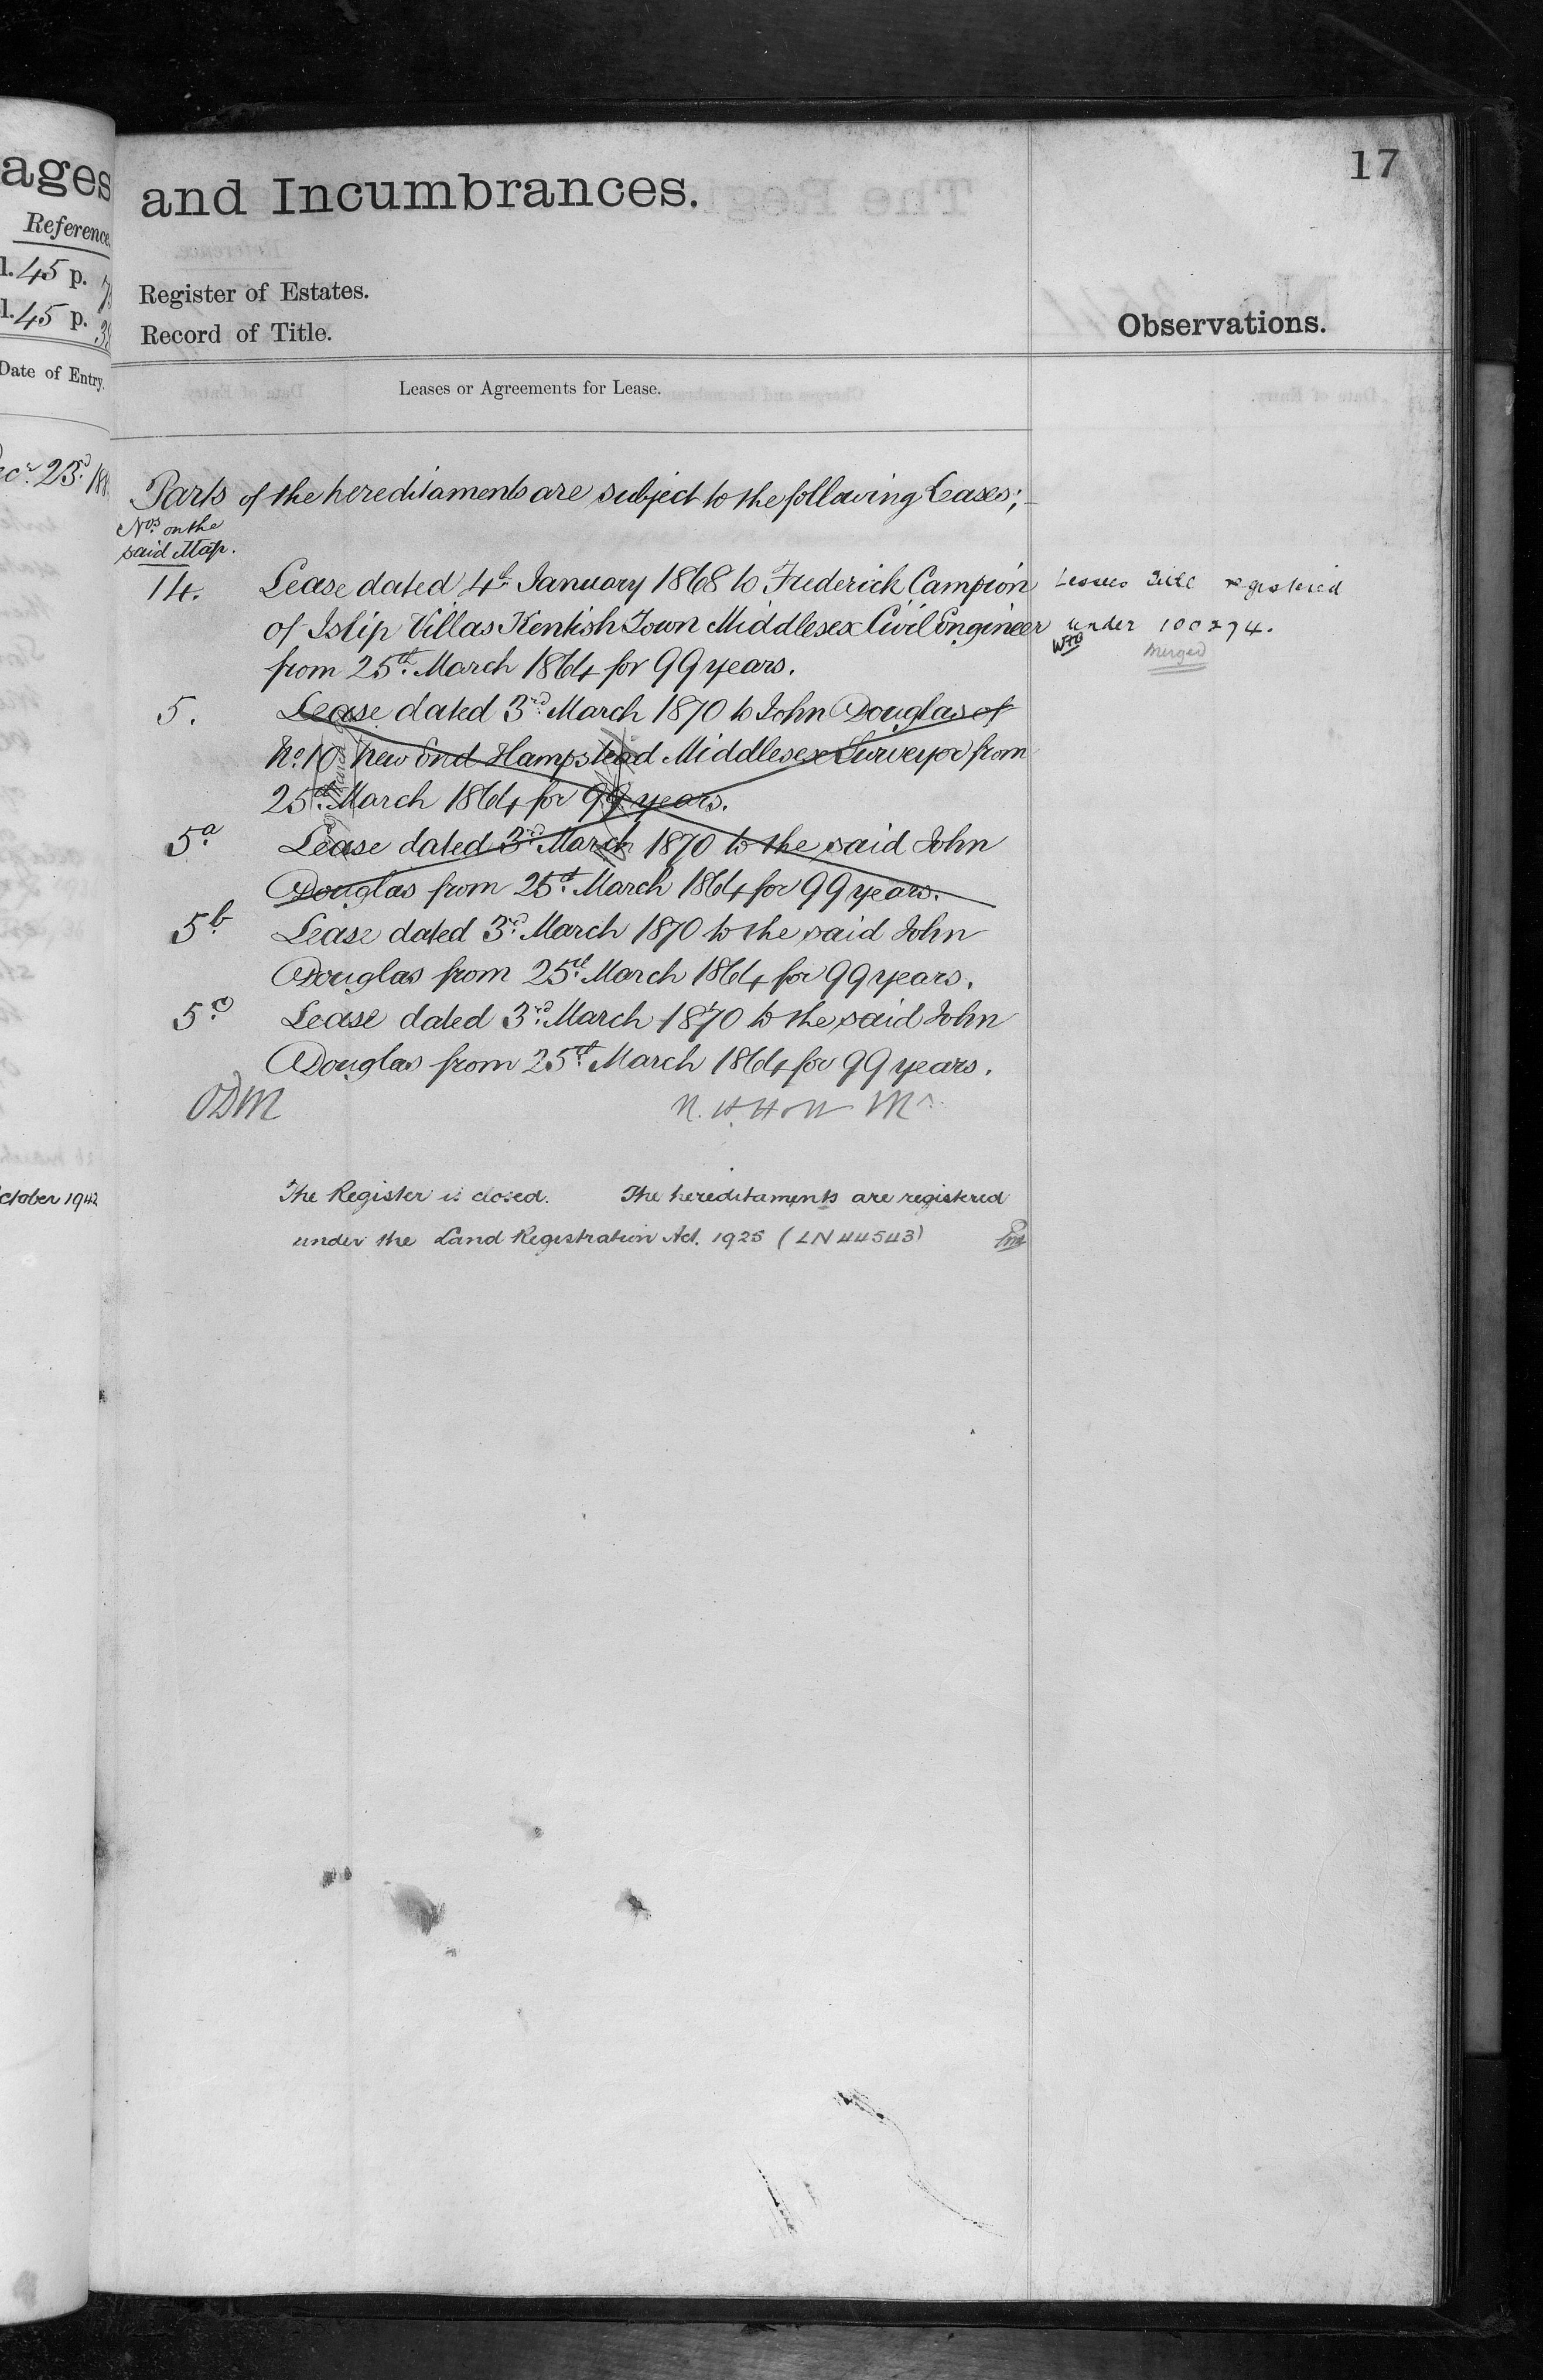 ages
Reference
l. 45 p.
l. 45 p.
Date of Entry.
23rd
ctober 1942
17
and Incumbrances.
Register of Estates.
Record of Title.
Observations.
Leases or Agreements for Lease.
Parts of the hereditaments are subject to the following Leases;—
Nos. on the
said Map.
14. Lease dated 4th January 1868 to Frederick Campion
of Islip Villas Kentish Town Middlesex Civil Engineer
from 25th March 1864 for 99 years.
Lessees title registered
under 100274.
Merged
5. Lease dated 3rd March 1870 to John Douglas of
No. 10 New End Hampstead Middlesex Surveyor from
25th March 1864 for 99 years.
5a Lease dated 3rd March 1870 to the said John
Douglas from 25th March 1864 for 99 years.
5b Lease dated 3rd March 1870 to the said John
Douglas from 25th March 1864 for 99 years.
5c Lease dated 3rd March 1870 to the said John
Douglas from 25th March 1864 for 99 years.
ODM
The Register is closed. The hereditaments are registered
under the Land Registration Act. 1925 (LN 44543)